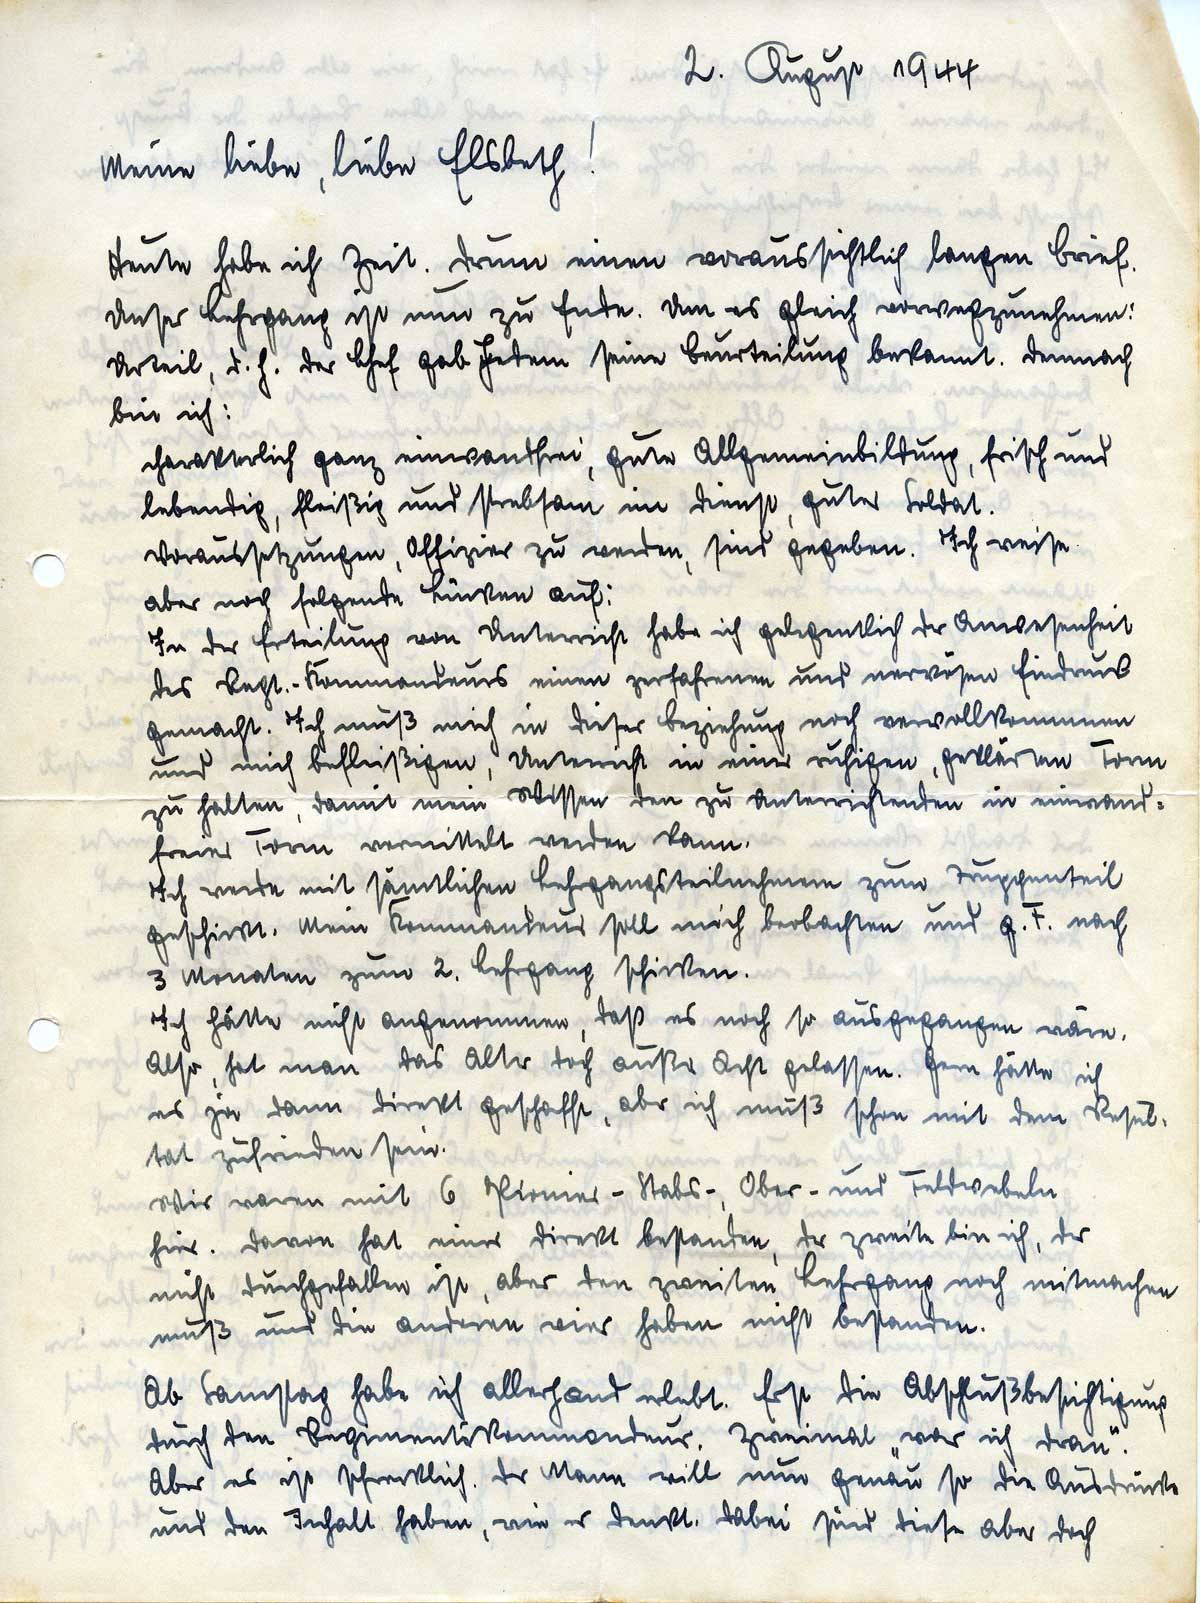 2. August 1944
Meine liebe, liebe Elsbeth!
Heute habe ich Zeit. Drum einen voraussichtlich langen Brief.
Unser Lehrgang ist nun zu Ende. Um es gleich vorwegzunehmen:
Urteil, d.h. der Chef gab Jedem seine Beurteilung bekannt. Demnach
bin ich:
charakterlich ganz einwandfrei, gute Allgemeinbildung, frisch und
lebendig, fleißig und strebsam im Dienst, guter Soldat.
Voraussetzungen, Offizier zu werden, sind gegeben. Ich weise
aber noch folgende Lücken auf:
In der Erteilung von Unterricht habe ich gelegentlich der Anwesenheit
des Regt.-Kommandeurs einen zerfahrenen und nervösen Eindruck
gemacht. Ich muß mich in dieser Beziehung noch vervollkommnen
und mich befleißigen, Unterricht in einer ruhigen, geklärten Form
zu halten, damit mein Wissen den zu Unterrichtenden in einwand-
freier Form vermittelt werden kann.
Ich werde mit sämtlichen Lehrgangsteilnehmern zum Truppenteil
geschickt. Mein Kommandeur soll mich beobachten und g.F. nach
3 Monaten zum 2. Lehrgang schicken.
Ich hätte nicht angenommen, daß es noch so ausgegangen wäre.
Also, hat man das Alter doch außer Acht gelassen. Gern hätte ich
es ja dann direkt geschafft, aber ich muß schon mit dem Resul-
tat zufrieden sein.
Wir waren mit 6 Pionier-Stabs-, Ober- und Feldwebeln
hier. Davon hat einer direkt bestanden, der zweite bin ich, der
nicht durchgefallen ist, aber den zweiten Lehrgang noch mitmachen
muß und die anderen vier haben nicht bestanden.
Ab Samstag habe ich allerhand erlebt. Erst die Abschlußbesichtigung
durch den Regimentskommandeur. Zweimal „war ich dran".
Aber es ist schrecklich. Der Mann will nun genau so die Ausdrücke
und den Inhalt haben, wie er denkt. Dabei sind diese aber doch